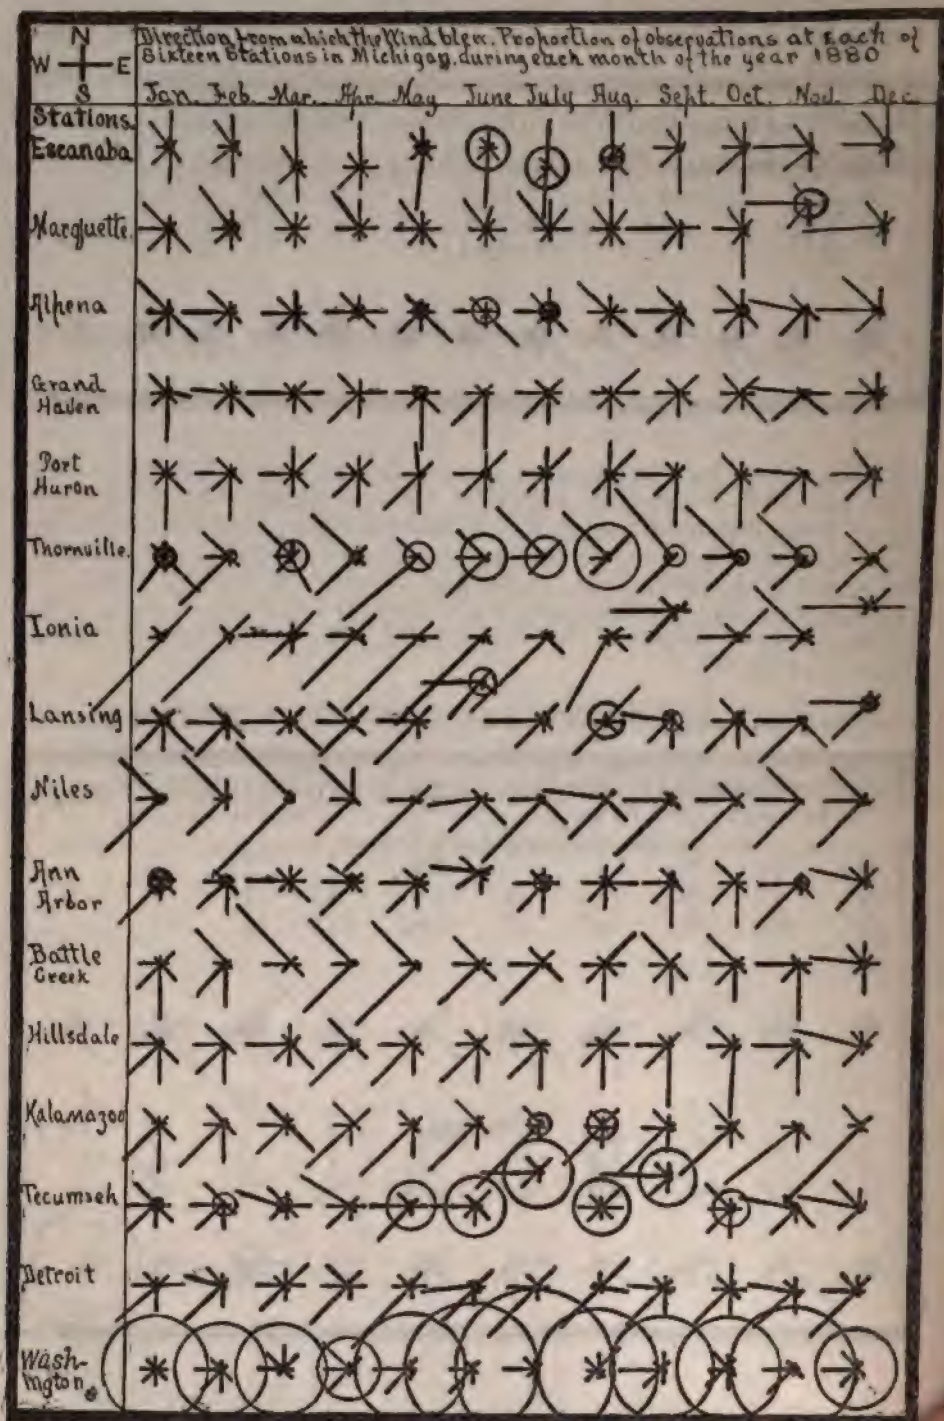 N
W E
S
Direction from which the Wind blew. Proportion of observations at each of
Sixteen Stations in Michigan, during each month of the year 1880
Jan. Feb. Mar. Apr. May June July Aug. Sept. Oct. Nov. Dec.
Stations.
Escanaba
Marquette.
Alpena
Grand
Haven
Port
Huron
Thornville.
Ionia
Lansing
Niles
Ann
Arbor
Battle
Creek
Hillsdale
Kalamazoo
Tecumseh
Detroit
Wash-
ington.